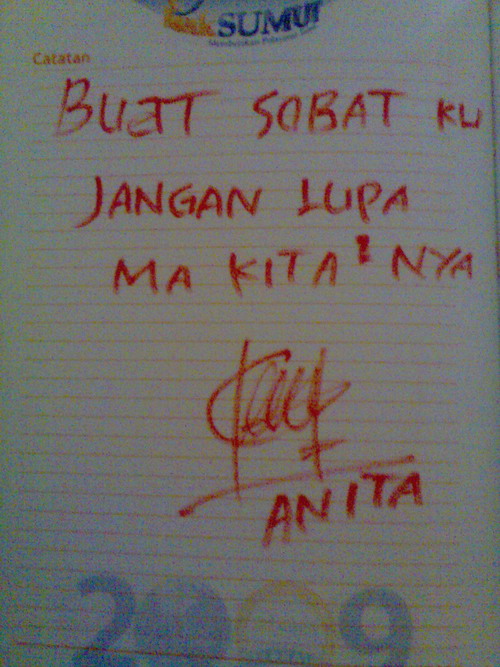 SUMUT
Catatan
BUAT SOBAT KU
JANGAN LUPA
MA KITA2NYA
ANITA
2009